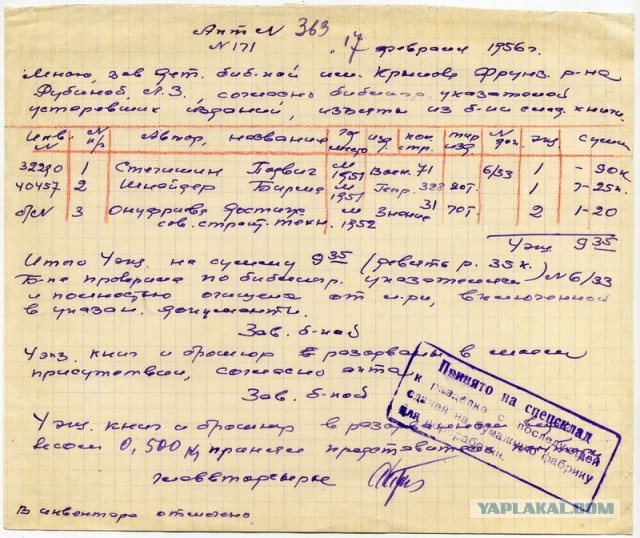 Акт N 363
N 171 17 февраля 1956 г.
Мною, зав. дет. биб-кой им. Крылова Фрунз. р-на
Рубиной Л.З., согласно библиогр. указателей
устаревших изданий, изъяты из б-ки след. книги.
Инв. N N п/п Автор, название год место изд. кол. стр. тир изд. N док. экз. сумм
32290 1 Степишин Подвиг М 1951 Воен. 71 6/53 1 -90к
40457 2 Шнайдер Бирма М 1951 Геогр. 328 20т. 1 7-25к.
б/N 3 Онуфриев Достиж. М Знание 31 70т. 2 1-20
сов. строит. техн. 1952
4 экз. 9 35
Итого 4 экз. на сумму 9 35 (девять р. 35 к.)
Б-ка проверена по библиогр. указателям N 6/53
и полностью очищена от л-ры, включенной
в указан. документы.
Зав. б-кой
4 экз. книг и брошюр разорваны в моем
присутствии, согласно акта
Зав. б-кой
4 экз. книг и брошюр в разорванном виде
весом 0,500 кг принял представитель
главвторсырья
В инвентаре отмечено.
Принято на спецсклад
к разделке с последующей
сдачей на бумажную фабрику
для переработки.
YAPLAKAL.COM